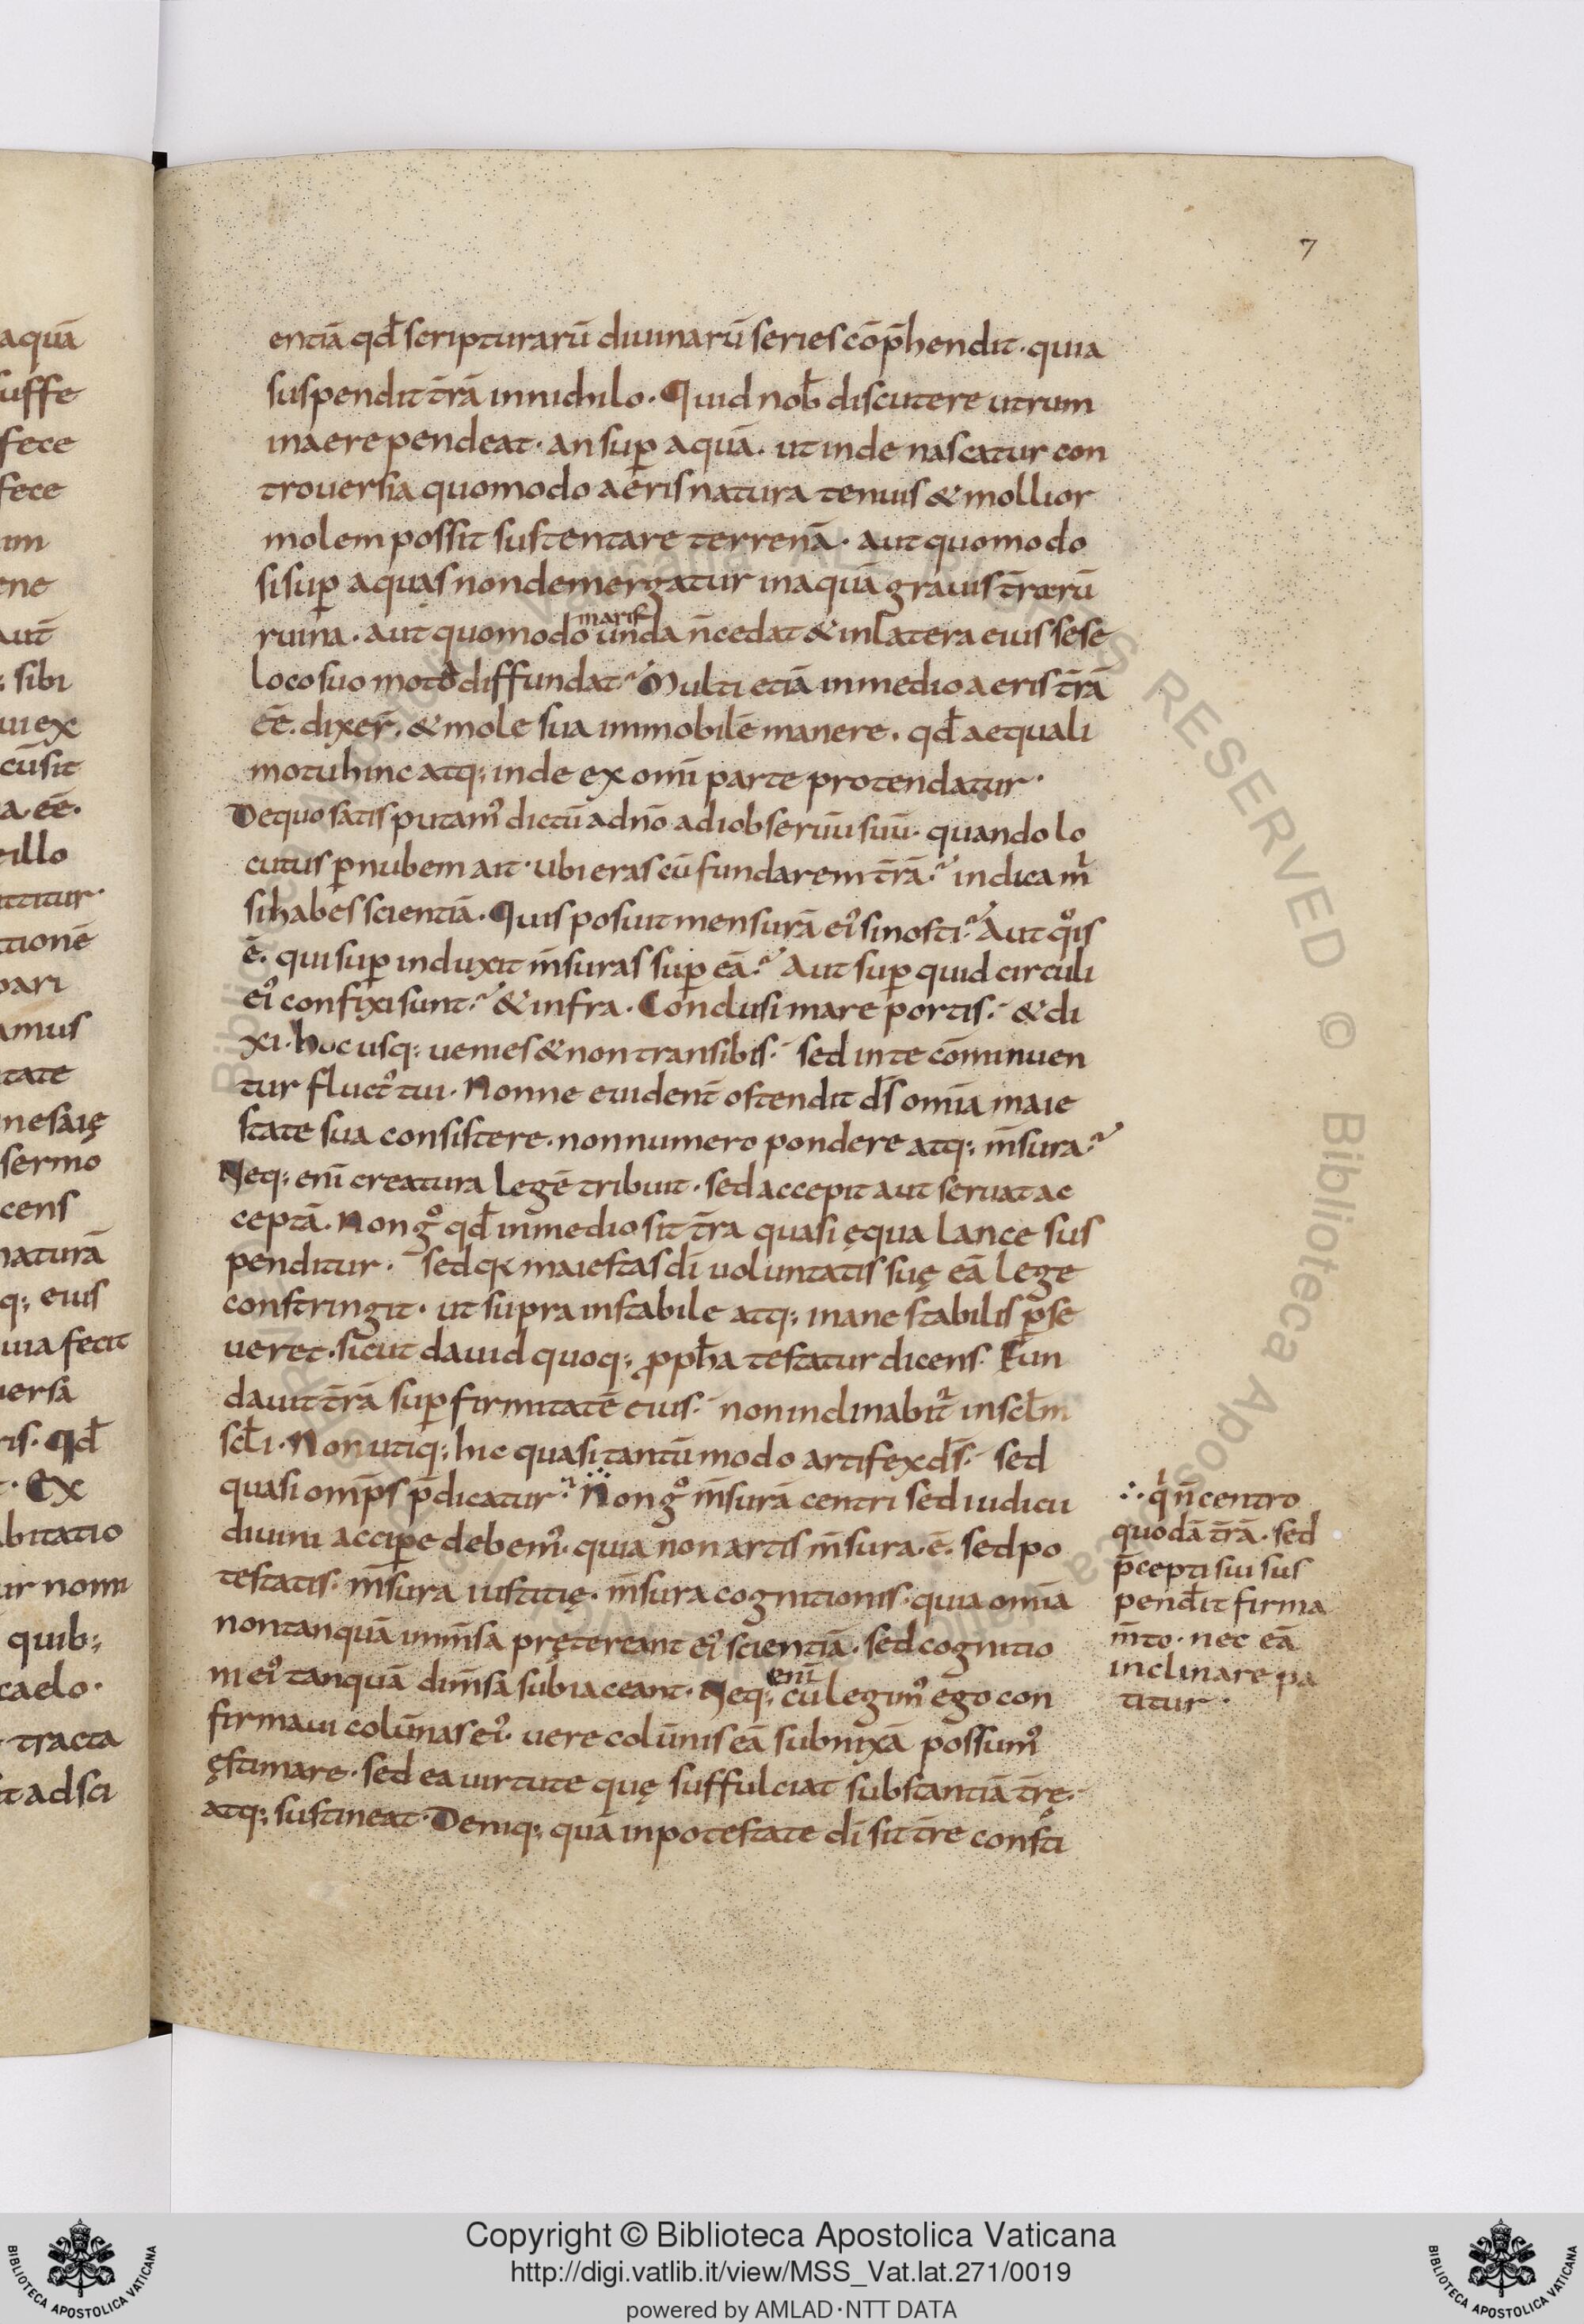 aquā
suffe
fece
fece
um
ene
aut̄
: sibi
ui ex
cūsit
a. eē.
illo
ittitur.
tionē
pari
amus
tate
nesaię
sermo
cens
naturā
q; eius
uia fecit
uersa
ris. Qđ
. Ex
abitatio
ur nomi
quib;
caelo.
tracta
t ad sci
7
entiā qđ scripturarū diuinarū series cōp̄hendit. quia
suspendit tr̄ā in nichilo. Quid nob̄ discutere utrum
in aere pendeat. an sup̱ aquā. ut inde nascatur con
trouersia quomodo aeris natura tenuis & mollior
molem possit sustentare terrenā. aut quomodo
si sup̱ aquas non demergatur in aquā grauis tr̄arū
ruina. aut quomodo maris unda n̄ cedat & in latera eius sese
loco suo moto diffundat? Multi etiā in medio aeris tr̄ā
eē. dixer̄. & mole sua immobilē manere. qđ aequali
motu hinc atq; inde ex om̄i parte protendatur.
De quo satis putam᾿ dictū a dn̄o ad iob seruū suū. quando lo
cutus p̱ nubem ait. ubi eras cū fundarem tr̄ā? indica mⁱ
si habes scientiā. Quis posuit mensurā ei᾿ si nosti? Aut qͦis
ē. qui sup̱induxit m̄suras sup̱ eā? Aut sup̱ quid circuli
ei᾿ confixi sunt? & infra. Conclusi mare portis. & di
xi. hucusq; uenies & non transibis. sed in te cōminuen
tur fluct᾿ tui. Nonne euident̄ ostendit ds̄ om̄ia maie
state sua consistere. non numero pondere atq; m̄sura?
Neq; enī creatura legē tribuit. sed accepit aut seruat ac
ceptā. Non gͦ qđ in medio sit tr̄a quasi ęqua lance sus
penditur. sed qꝛ maiestas dī uoluntatis suę eā lege
constringit. ut supra instabile atq; inane stabilis p̱se
ueret. sicut dauid quoq; ꝓpħa testatur dicens. Fun
dauit tr̄ā sup̱ firmitatē eius. non inclinabit᾿ in scłm
scłi. Non utiq; hic quasi tantūmodo artifex ds̄. sed
quasi omp̄s p̄dicatur? Non gͦ m̄surā centri sed iudicii
diuini accip̱e debem᾿. quia non artis m̄sura. ē. sed po
testatis. m̄sura iustitię. m̄sura cognitionis. quia om̄ia
non tanquā inm̄sa pręterеant ei᾿ scientiā. sed cognitio
ni ei᾿ tanquā dim̄sa subiaceant. Neq; enī cū legim᾿ ego con
firmaui colūnas ei᾿. uere colūnis eā subnixā possum᾿
ęstimare. sed ea uirtute quę suffulciat substantiā tr̄ę.
atq; sustineat. Deniq; quā in potestate dī sit tr̄e consti
∴ qⁱ n̄ centro
quodā tr̄ā. sed
p̄cepti sui sus
pendit firma
m̄to. nec eā
inclinare pa
titur.
Copyright © Biblioteca Apostolica Vaticana
http://digi.vatlib.it/view/MSS_Vat.lat.271/0019
powered by AMLAD·NTT DATA
BIBLIOTECA APOSTOLICA VATICANA
BIBLIOTECA APOSTOLICA VATICANA